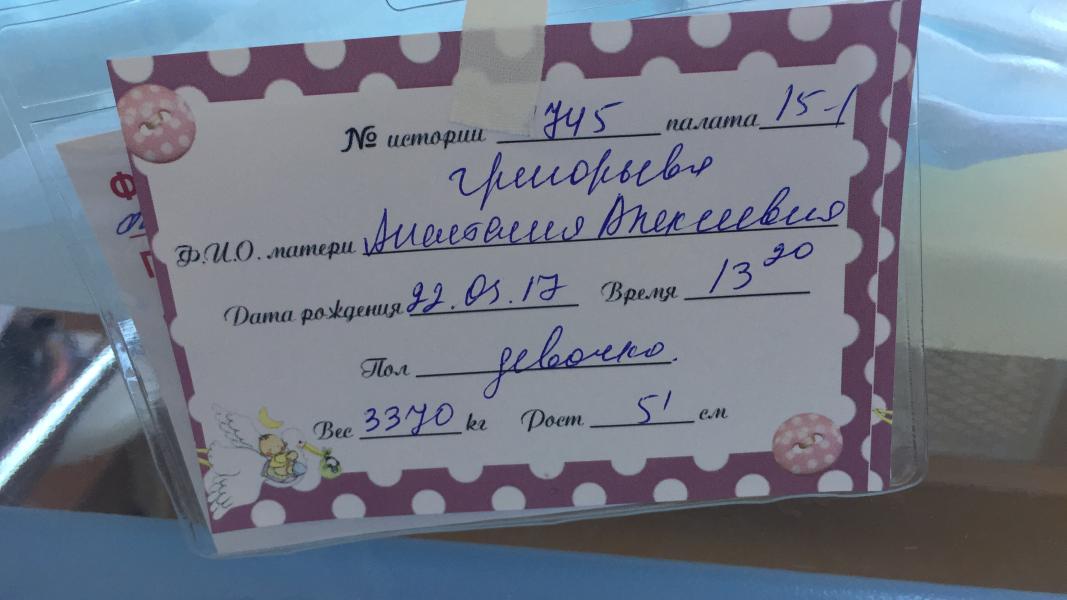 № истории 745 палата 15-1
Григорьева
Ф.И.О. матери Анастасия Алексеевна
Дата рождения 22.05.17 Время 13 20
Пол девочка.
Вес 3370 kг Рост 51 см